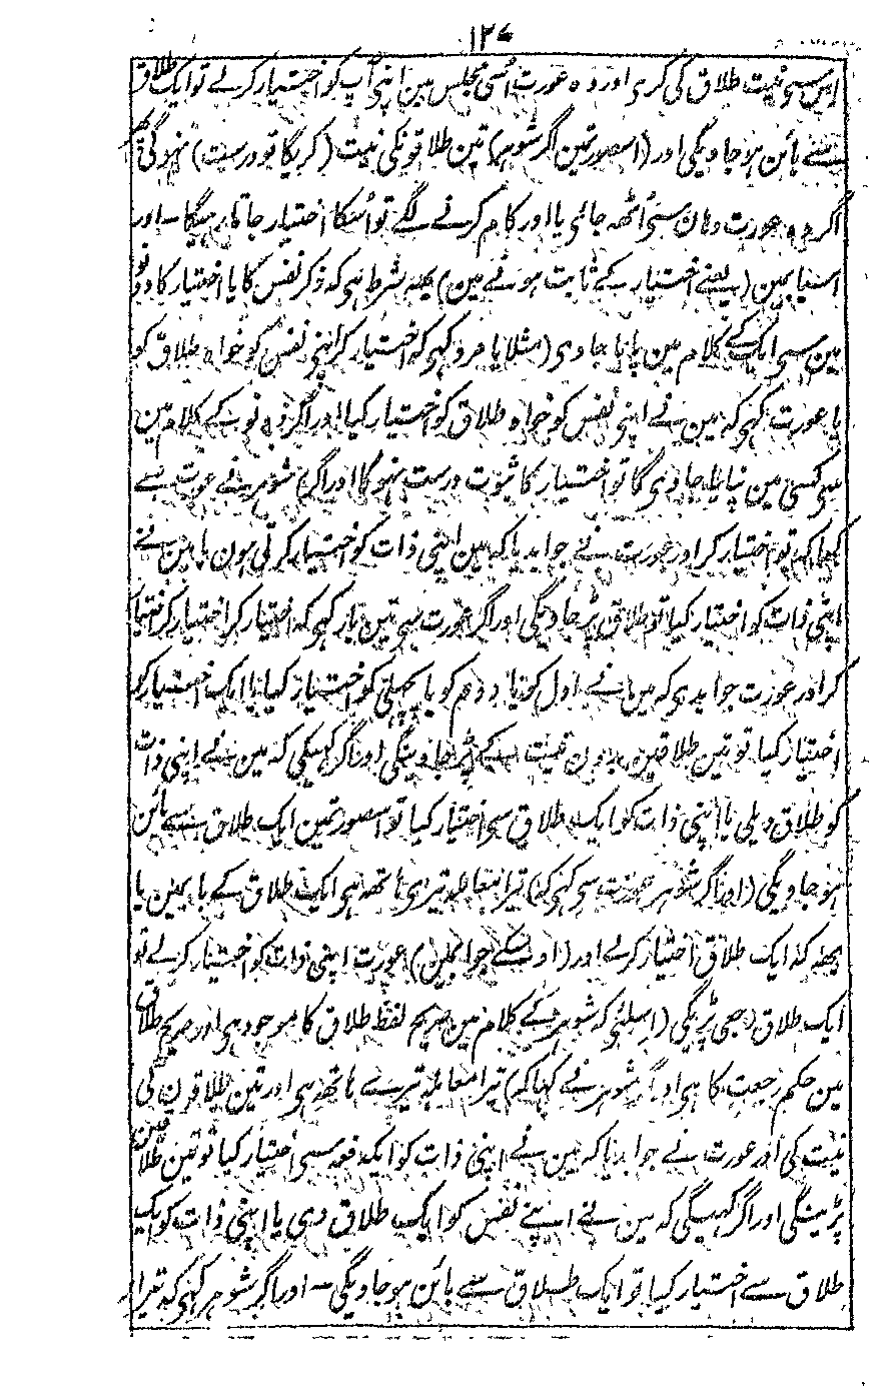 ۱۲۷
اس سی نیت طلاق کی کری اور وہ عورت اُسی مجلس مین اپنی آپ کو اختیار کر لے تو ایک طلاق
سے بائن ہو جاویگی اور (اسصورتمین اگر شوہر) تین طلاقونکی نیت (کریگا تو درست) نہوگی
اگر وہ عورت وہان سی اُٹھہ جائی یا اور کام کرنے لگے تو اُسکا اختیار جاتا رہیگا ۔ اور
اسبابمین (یعنے اختیار کے ثابت ہونے مین) یہہ شرط ہی کہ ذکر نفس کا یا اختیار کا دونو
مین سی ایک کے کلام مین پایا جاوی (مثلا یا مرد کہی کہ اختیار کر اپنی نفس کو خواہ طلاق کو
یا عورت کہی کہ مین نے اپنی نفس کو خواہ طلاق کو اختیار کیا اور اگر دونو کے کلام مین
سی کسی مین نپایا جاوی گا تو اختیار کا ثبوت درست نہوگا اور اگر) شوہر نے عورت سے
کہا کہ تو اختیار کر اور عورت نے جوابدیا کہ مین اپنی ذات کو اختیار کرتی ہون یا مین نے
اپنی ذات کو اختیار کیا تو طلاق پڑ جاویگی اور اگر عورت سی تین بار کہی کہ اختیار کر اختیار کر اختیار
کر اور عورت جوابدی کہ مین نے اول کو یا دوم کو یا پچھلی کو اختیار کیا یا ایک اختیار کو
اختیار کیا تو تین طلاقین بدون نیت کے پڑ جاوینگی اور اگر کہیگی کہ مین نے اپنی ذات
کو طلاق دیلی یا اپنی ذات کو ایک طلاق سی اختیار کیا تو اسصورتمین ایک طلاق سے بائن
ہو جاویگی (اور اگر شوہر عورت سی کہی کہ) تیرا معاملہ تیری ہاتھہ ہی ایک طلاق کے بابمین یا
یہہ کہ ایک طلاق اختیار کر لے اور (اوسکے جوابمین) عورت اپنی ذات کو اختیار کر لے تو
ایک طلاق رجعی پڑیگی (اسلئی کہ شوہر کے کلام مین صریح لفظ طلاق کا موجود ہی اور صریح طلاق
مین حکم رجعت کا ہی اور اگر شوہر نے کہا کہ) تیرا معاملہ تیرے ہاتھہ ہی اور تین طلاقون کی
نیت کی اور عورت نے جوابدیا کہ مین نے اپنی ذات کو ایکدفعہ سی اختیار کیا تو تین طلاقین
پڑینگی اور اگر کہیگی کہ مین نے اپنے نفس کو ایک طلاق دی یا اپنی ذات کو ایک
طلاق سے اختیار کیا تو ایک طلاق سے بائن ہو جاویگی ۔ اور اگر شوہر کہی کہ تیرا